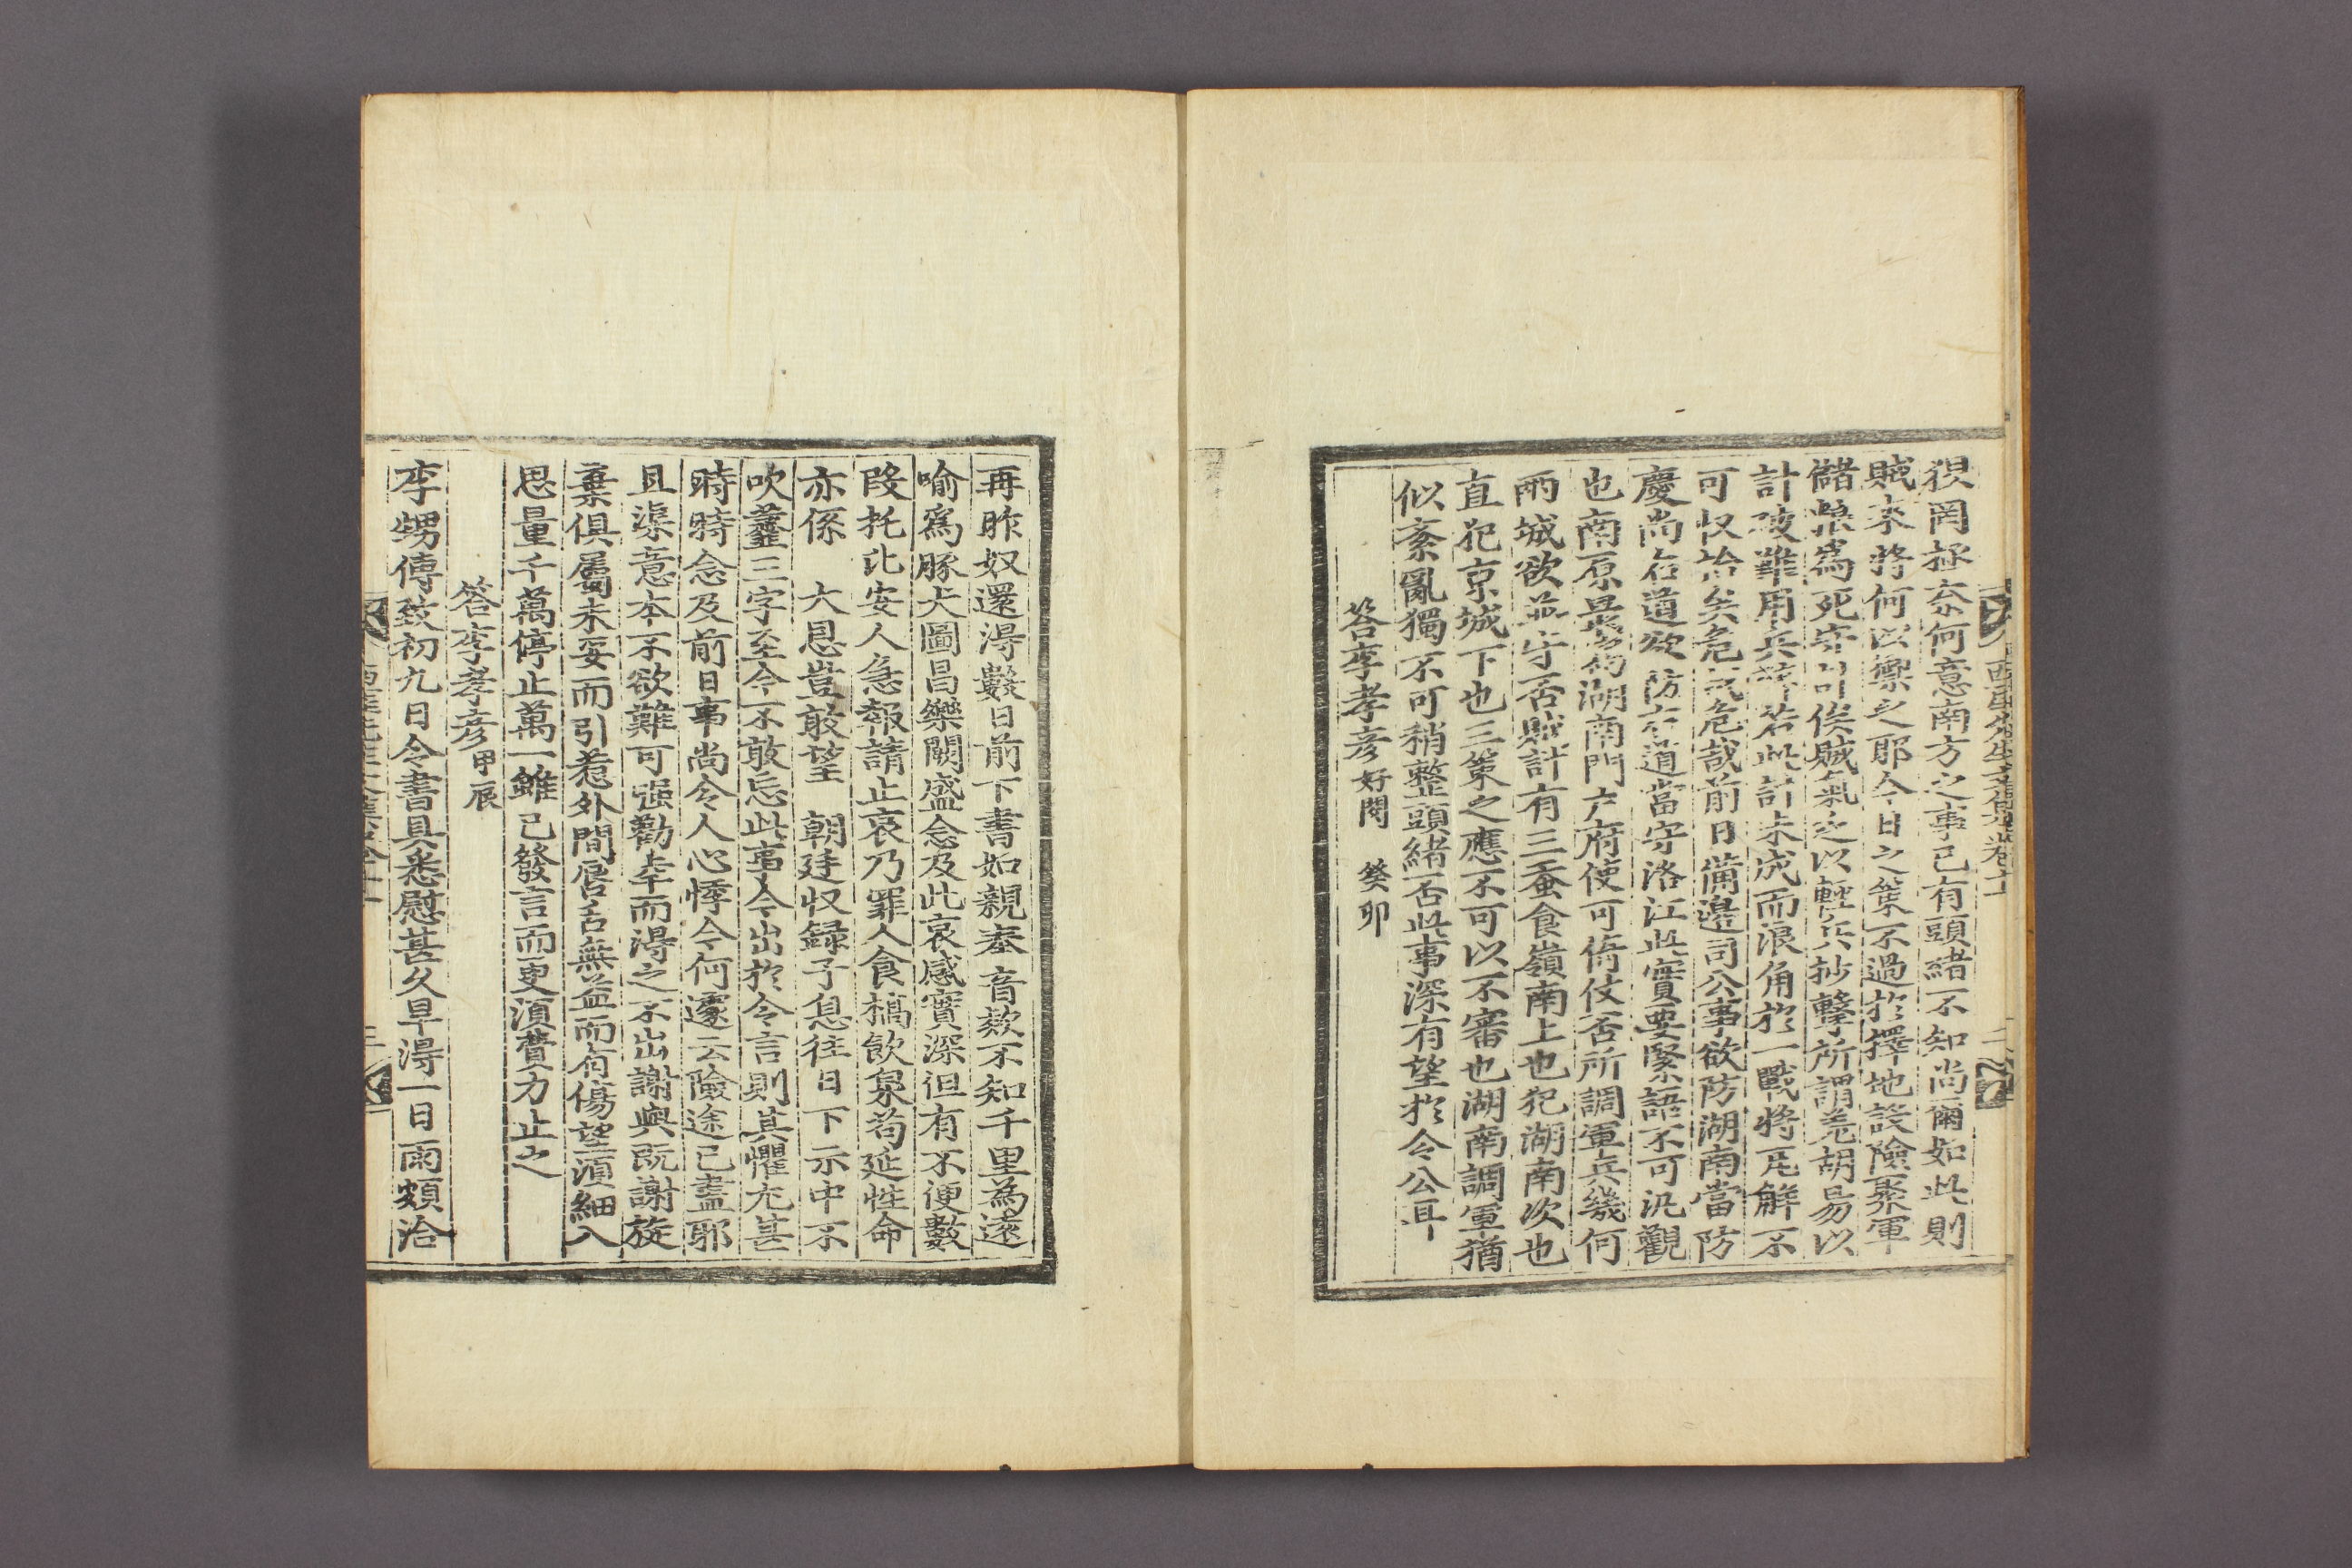 西厓先生文集卷十一
二
狽罔拯奈何意南方之事已有頭緒不知尚爾如此則
賊來將何以禦之耶今日之策不過於擇地設險聚軍
儲粮爲死守計俟賊氣乏以輕兵抄擊所謂羌胡易以
計破難用兵碎若此計未成而浪角於一戰將瓦解不
可收拾矣危哉危哉前日備邊司公事欲防湖南當防
慶尚右道欲防右道當守洛江此實要緊語不可汎觀
也南原最爲湖南門户府使可倚仗否所調軍兵幾何
兩城欲並守否賊計有三蚕食嶺南上也犯湖南次也
直犯京城下也三策之應不可以不審也湖南調軍猶
似紊亂獨不可稍整頭緒否此事深有望於令公耳
答李孝彦 好閔 癸卯
再昨奴還得數日前下書如親奉音欬不知千里爲遠
喻爲豚犬圖昌樂闕盛念及此哀感實深但有不便數
段托此安人急報請止哀乃罪人食槁飮泉苟延性命
亦係 大恩豈敢望 朝廷収録子息往日下示中不
吹虀三字至今不敢忘此事今出於令言則其懼尤甚
時時念及前日事尚令人心悸今何遽云險途已盡耶
且渠意本不欲難可强勸幸而得之不出謝與既謝旋
棄俱屬未妥而引惹外間唇舌無益而有傷望須細入
思量千萬停止萬一雖已發言而更須費力止之
答李孝彦 甲辰
李甥傳致初九日令書具悉慰甚久旱得一日雨頗洽
西厓先生文集卷十一
三